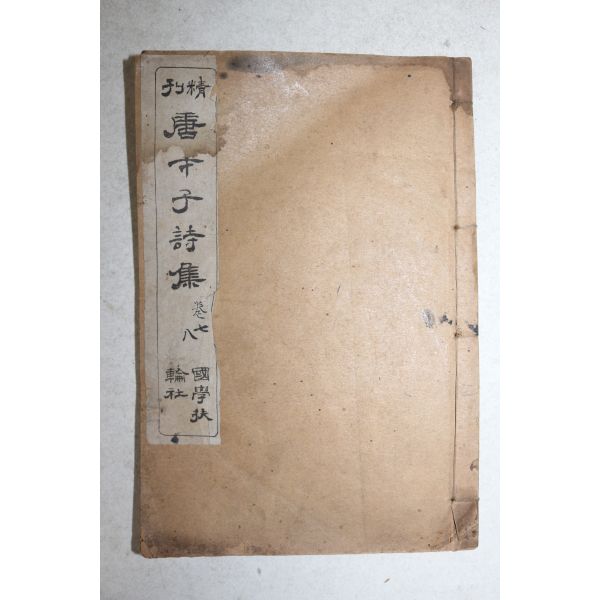 精刊
唐才子詩集
卷七
八
國學扶
輪社